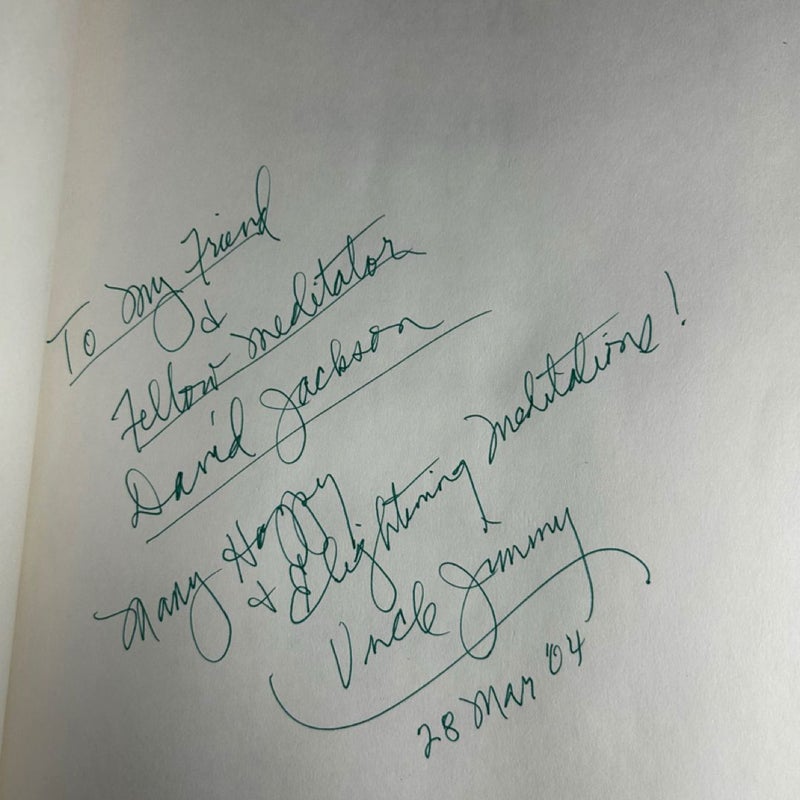 To My Friend
&
Fellow Meditator
David Jackson
Many Happy
& Elightening Meditations!
Uncle Jimmy
28 Mar '04